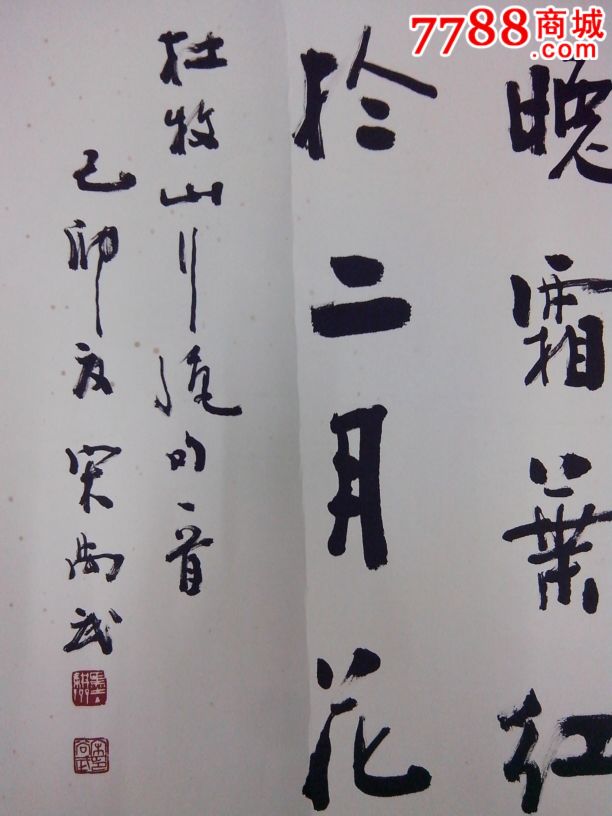 7788商城
.com
晚霜葉红
於二月花
杜牧山行绝句一首
己卯夏宋尚武